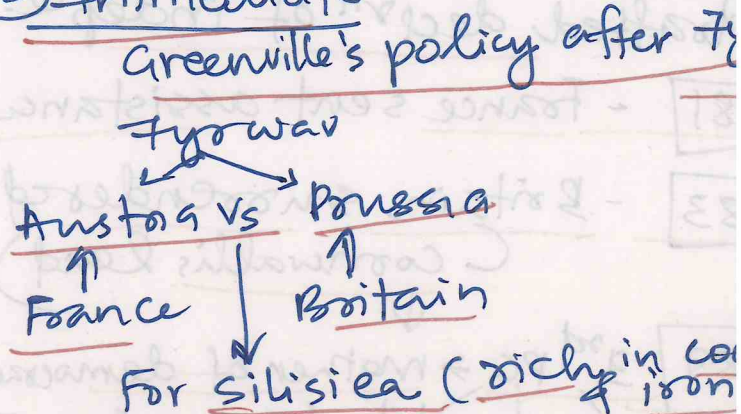 Immediate
Greenville's policy after 7y
7yr war
Austria vs Prussia
France Britain
For Silisiea (rich in co
& iron